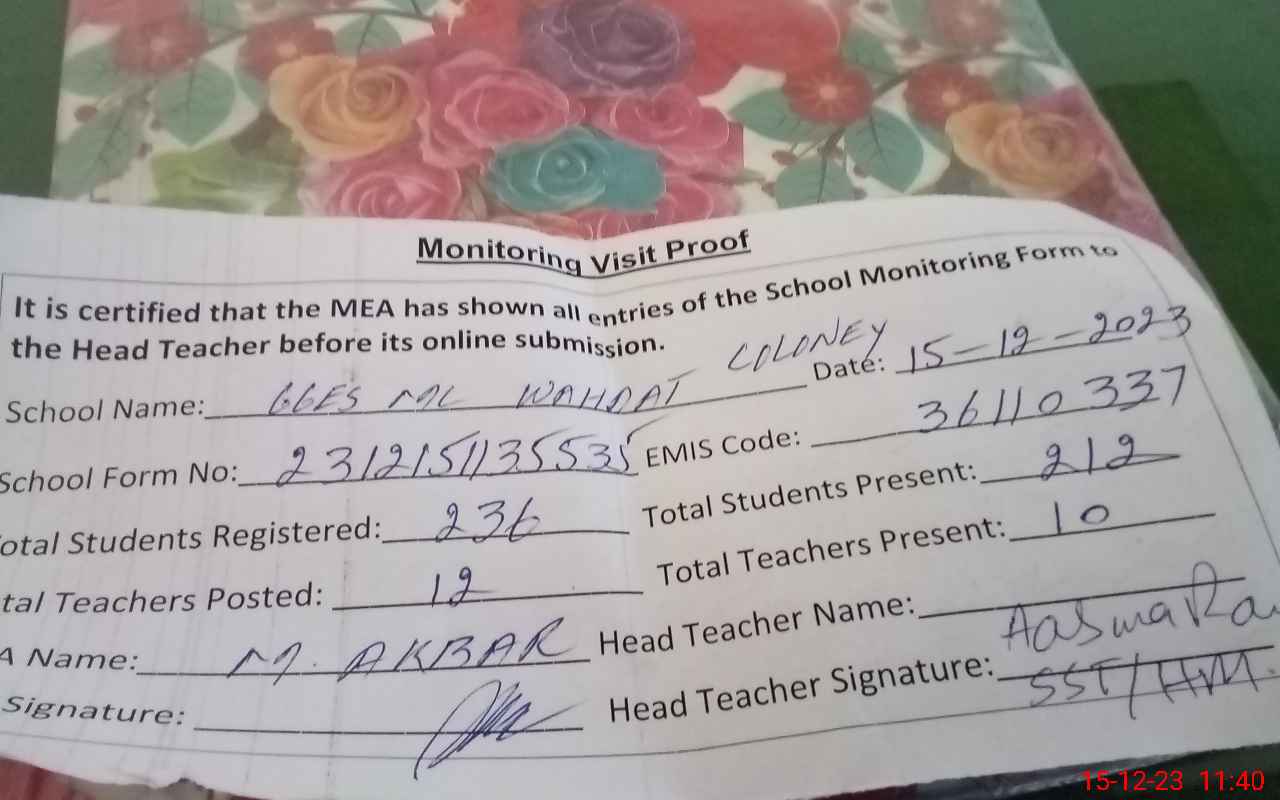 Monitoring Visit Proof
It is certified that the MEA has shown all entries of the School Monitoring Form to
the Head Teacher before its online submission.
School Name: GGES MC WAHDAT COLONEY Date: 15-12-2023
School Form No: 231215113553 EMIS Code: 36110337
otal Students Registered: 236 Total Students Present: 212
tal Teachers Posted: 12 Total Teachers Present: 10
A Name: M. AKBAR Head Teacher Name: Aasma Ra
Signature: Head Teacher Signature: SST/HM.
15-12-23 11:40